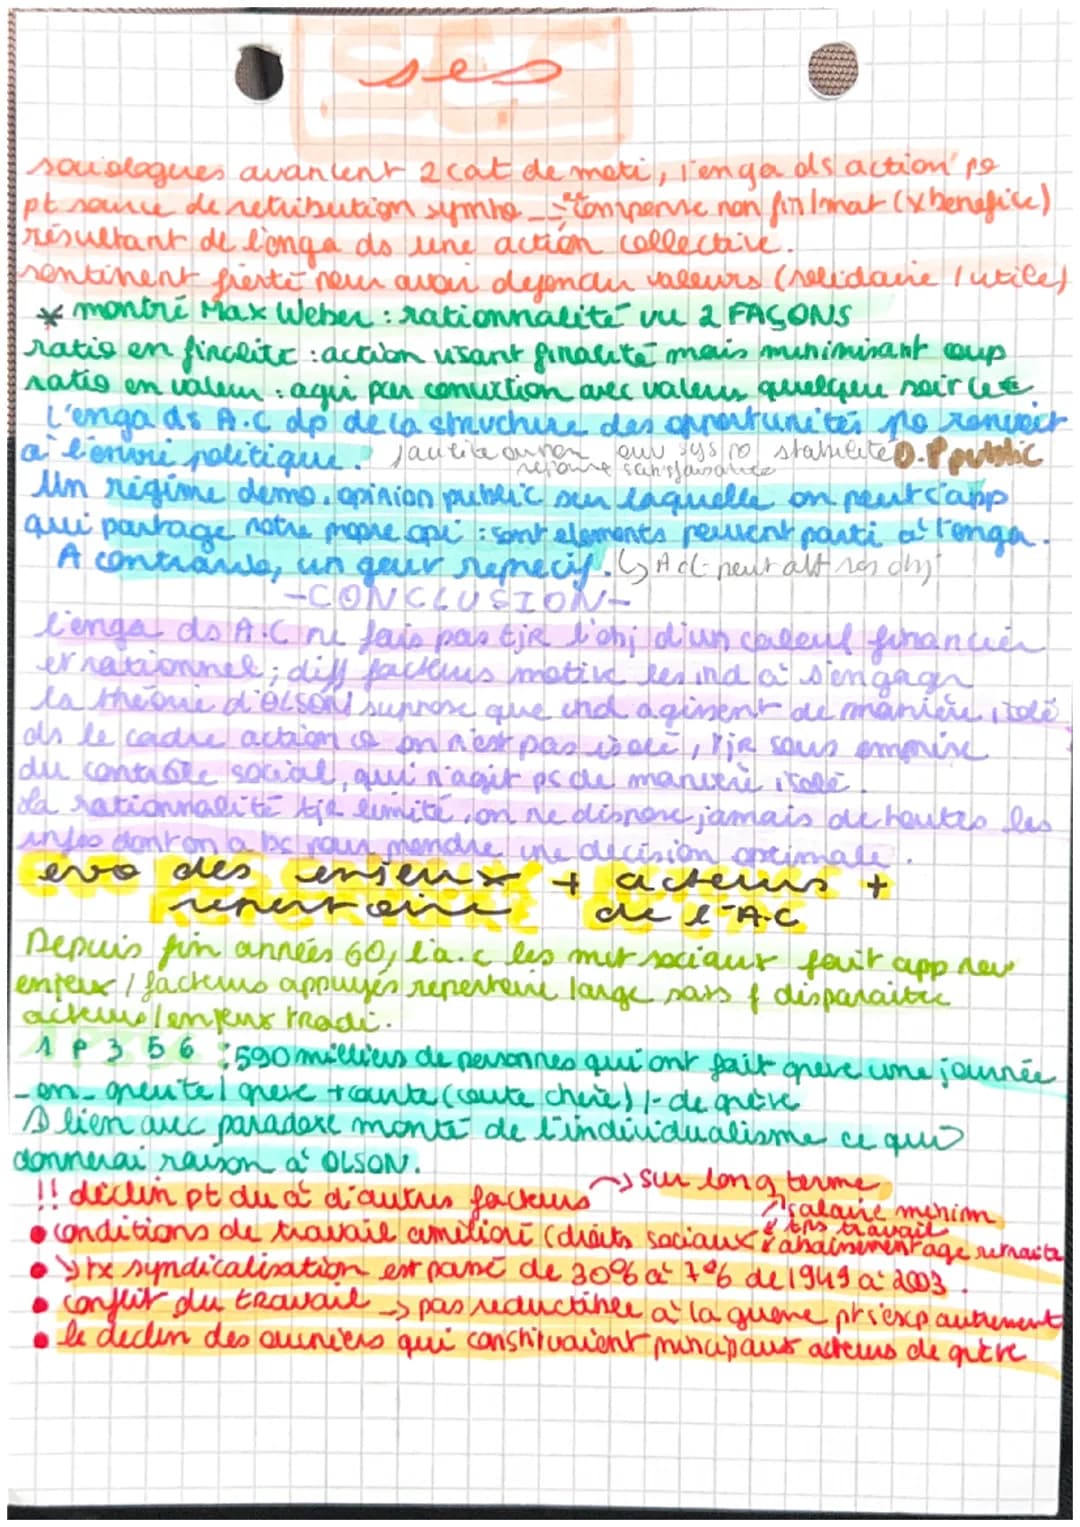 ses
sociologues avancent 2 cat de moti, l'enga ds action po
pt source de retribution symbo → compense non fin/mat (x benefice)
résultant de l'enga ds une action collective.
sentiment fierté pour avoir defendu valeurs (solidaire / utile)
* montré Max Weber : rationnalité vu 2 FAÇONS
ratio en finalité : action visant finalité mais minimisant coup
ratio en valeur : agir par conviction avec valeurs quelque soir le €
L'enga ds A.C dp de la structure des opportunités po renvoit
à l'envie politique. stabilité O.P public
réponse satisfaisante
Un régime démo. opinion public sur laquelle on peut s'app
qui partage notre propre opi : sont elements peuvent parti à l'enga.
A contraire, un gouv repressif. ↳ A.C peut att ses obj
-CONCLUSION-
l'enga ds A.C ne fais pas tjr l'obj d'un calcul financier
et rationnel ; diff facteurs motive les ind à s'engager
la théorie d'OLSON suppose que ind agissent de manière isolé
ds le cadre action co on n'est pas isolé, tjr sous emprise
du contrôle social, qui n'agit ps de manière isolé.
La rationnalité tjr limité, on ne dispose jamais de toutes les
infos dont on a bs pour prendre une décision optimale.
evo des enjeux + acteurs +
repertoire de l'A.C
Depuis fin années 60, l'a.c les mvt sociaux fait app nev
enjeux / facteurs appuyés repertoire large sans f disparaitre
acteurs/enjeux tradi.
1 P 3 5 6 : 590 milliers de personnes qui ont fait greve une journée
de grève
lien avec paradoxe monté de l'individualisme ce qui
donnerai raison à OLSON.
!! déclin pt du à d'autres facteurs → sur long terme
salaire minim
tps travail
• conditions de travail amélioré (droits sociaux abaissement age retraite
• ↘ tx syndicalisation est passé de 30% à 7% de 1949 à 2003.
• conflit du travail → pas reductible à la greve pt s'exp autrement
• le declin des ouvriers qui constituaient principaux acteurs de grève